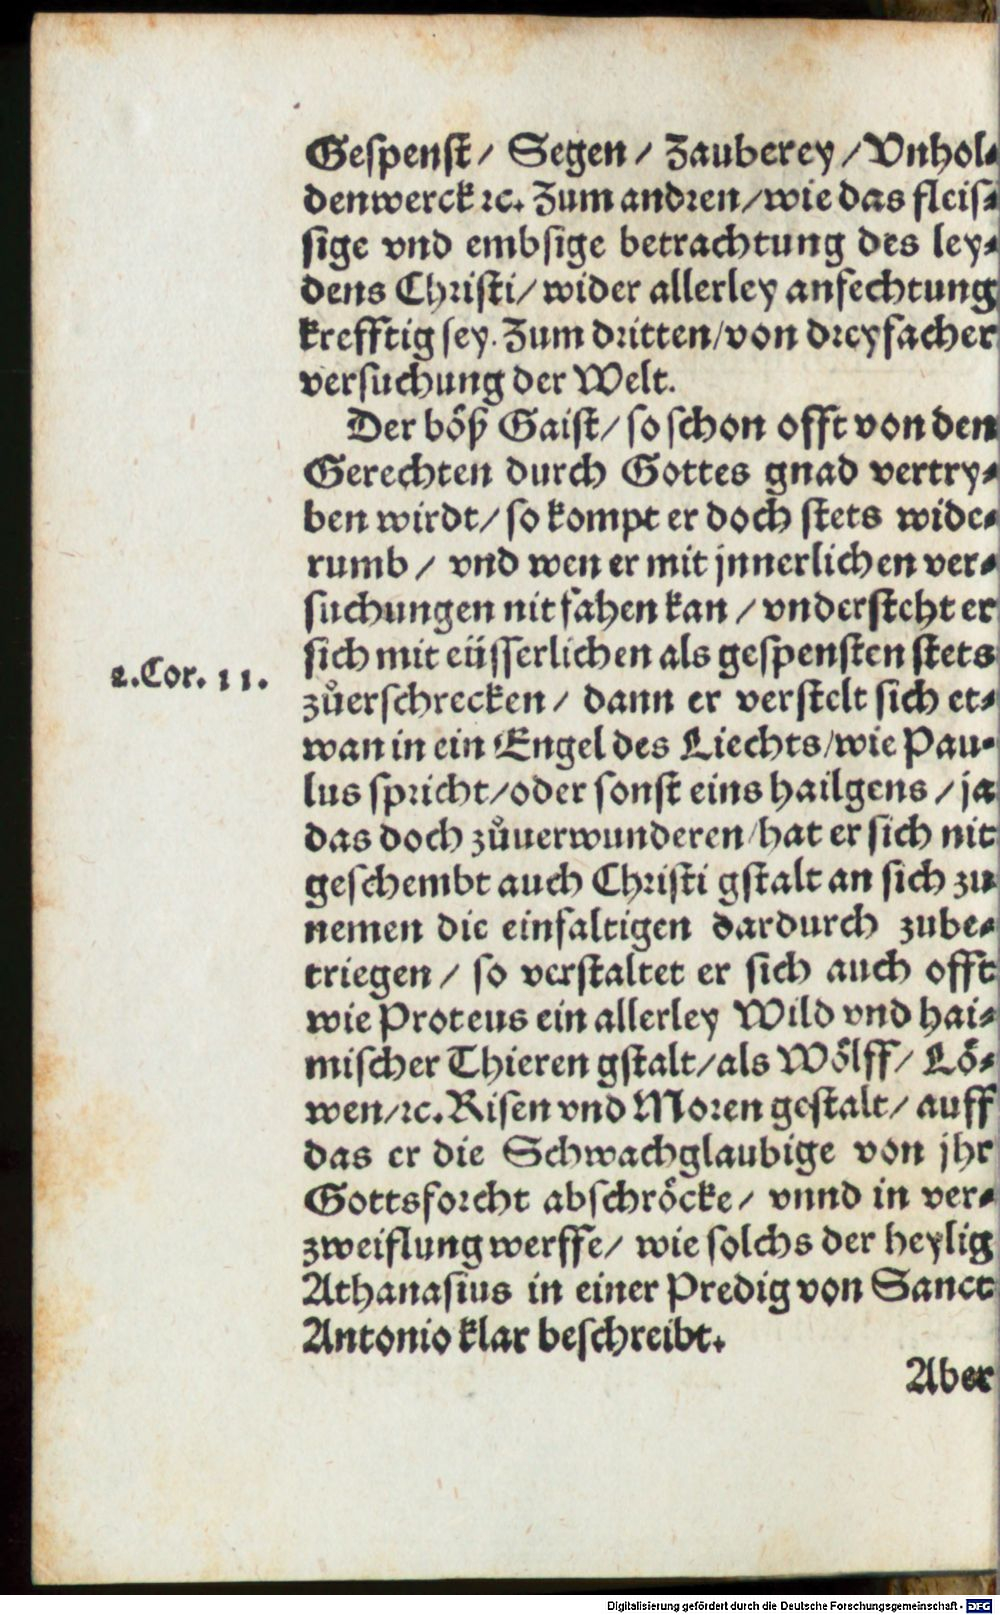 Gespenst/ Segen/ Zauberey/Vnhol⸗
denwerck ꝛc. Zum andren/wie das fleis⸗
sige vnd embsige betrachtung des ley⸗
dens Christi/wider allerley anfechtung
krefftig sey. Zum dritten/von dreyfacher
versuchung der Welt.
Der böß Gaist/ so schon offt von den
Gerechten durch Gottes gnad vertry⸗
ben wirdt/ so kompt er doch stets wide⸗
rumb/ vnd wen er mit jnnerlichen ver⸗
suchungen nit fahen kan/ vndersteht er
sich mit eüsserlichen als gespensten stets
2.Cor. 11.
zůerschrecken/ dann er verstelt sich et⸗
wan in ein Engel des Liechts/wie Pau⸗
lus spricht/oder sonst eins hailgens/ ja
das doch zůuerwunderen/hat er sich nit
geschembt auch Christi gstalt an sich zu
nemen die einfaltigen dardurch zube⸗
triegen/ so verstaltet er sich auch offt
wie Proteus ein allerley Wild vnd hai⸗
mischer Thieren gstalt/als Wölff/ Lö⸗
wen/ꝛc. Risen vnd Moren gestalt/ auff
das er die Schwachglaubige von jhr
Gottsforcht abschröcke/ vnnd in ver⸗
zweiflung werffe/ wie solchs der heylig
Athanasius in einer Predig von Sanct
Antonio klar beschreibt.
Aber
Digitalisierung gefördert durch die Deutsche Forschungsgemeinschaft - DFG